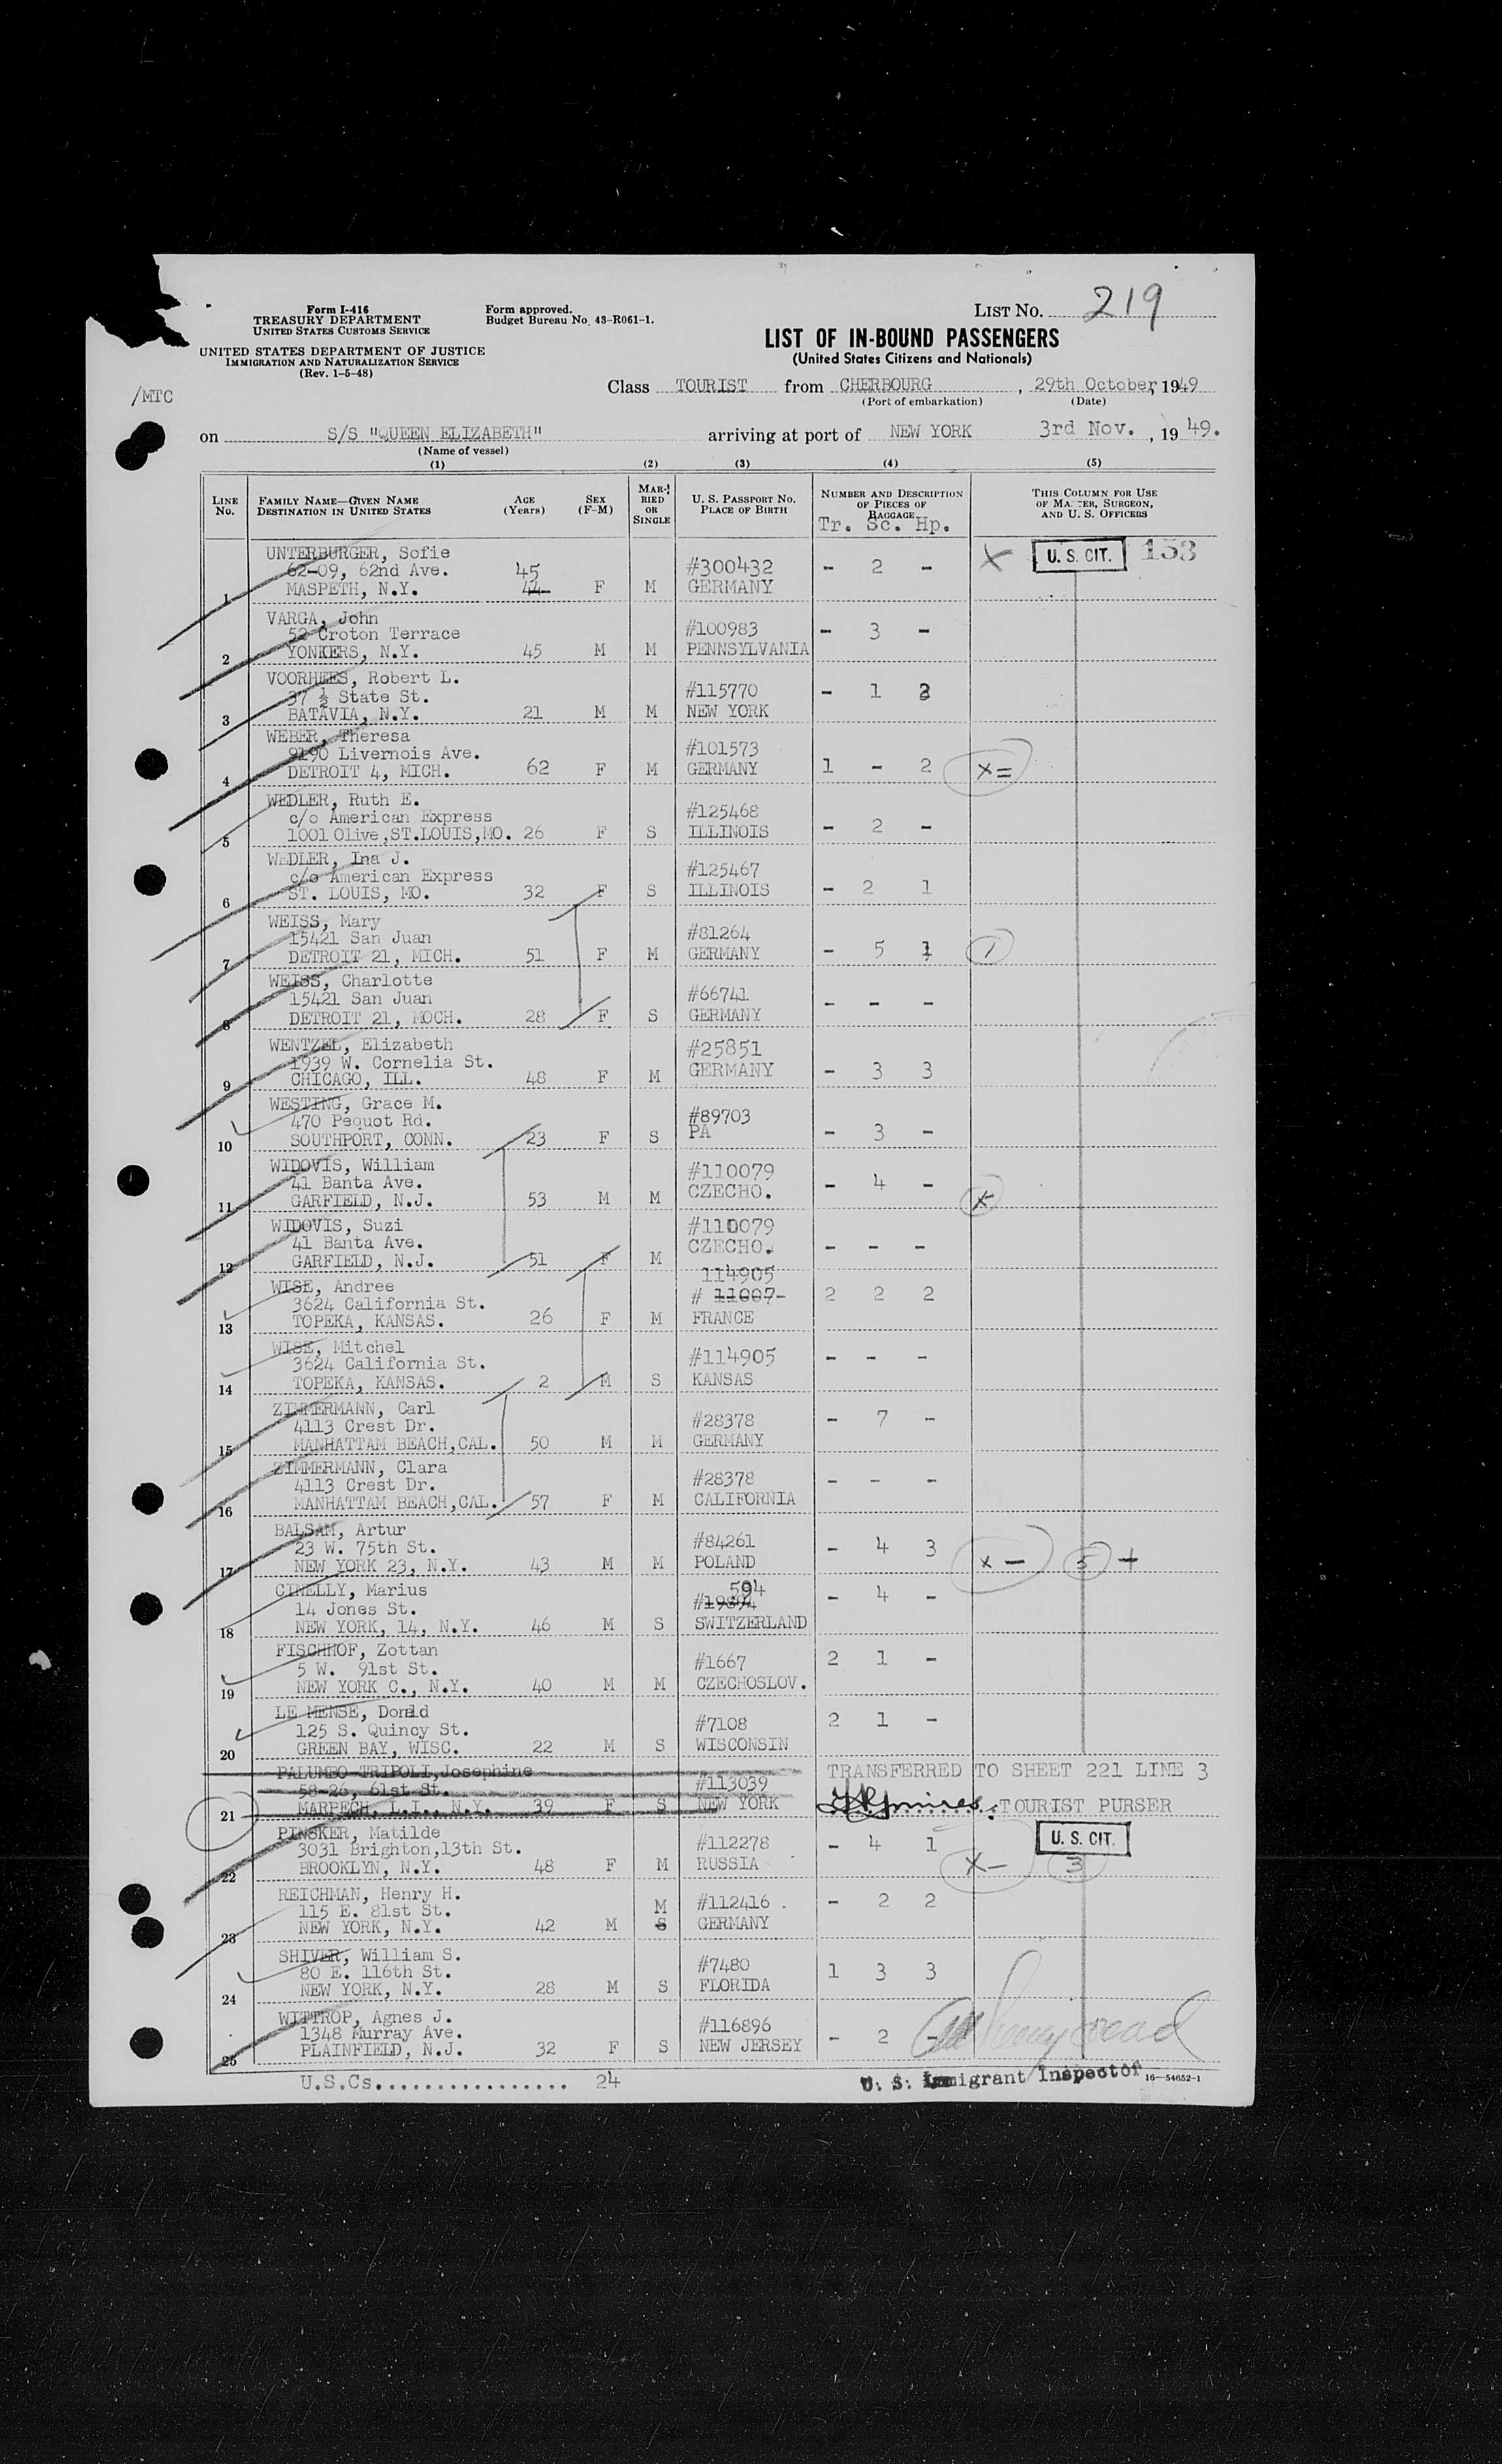 Form I-416
TREASURY DEPARTMENT
UNITED STATES CUSTOMS SERVICE
Form approved.
Budget Bureau No. 43-R061-1.
LIST NO. 219
UNITED STATES DEPARTMENT OF JUSTICE
IMMIGRATION AND NATURALIZATION SERVICE
(Rev. 1-5-48)
LIST OF IN-BOUND PASSENGERS
(United States Citizens and Nationals)
/MTC
Class TOURIST from CHERBOURG, 29th October, 1949
(Port of embarkation) (Date)
on S/S "QUEEN ELIZABETH" arriving at port of NEW YORK 3rd Nov., 1949.
(Name of vessel)
(1) (2) (3) (4) (5)
LINE No. FAMILY NAME—GIVEN NAME DESTINATION IN UNITED STATES AGE (Years) SEX (F-M) MARRIED OR SINGLE U. S. PASSPORT NO. PLACE OF BIRTH NUMBER AND DESCRIPTION OF PIECES OF BAGGAGE THIS COLUMN FOR USE OF MASTER, SURGEON, AND U. S. OFFICERS
Tr. Sc. Hp.
UNTERBURGER, Sofie
62-09, 62nd Ave. 45 #300432 - 2 - X U. S. CIT. 153
1 MASPETH, N.Y. 44 F M GERMANY
VARGA, John
52 Croton Terrace #100983 - 3 -
2 YONKERS, N.Y. 45 M M PENNSYLVANIA
VOORHEES, Robert L.
37 ½ State St. #115770 - 1 2
3 BATAVIA, N.Y. 21 M M NEW YORK
WEBER, Theresa
9190 Livernois Ave. #101573
4 DETROIT 4, MICH. 62 F M GERMANY 1 - 2 X=
WEDLER, Ruth E.
c/o American Express #125468
5 1001 Olive,ST.LOUIS,MO. 26 F S ILLINOIS - 2 -
WEDLER, Ina J.
c/o American Express #125467
6 ST. LOUIS, MO. 32 F S ILLINOIS - 2 1
WEISS, Mary
15421 San Juan #81264
7 DETROIT 21, MICH. 51 F M GERMANY - 5 1 1
WEISS, Charlotte
15421 San Juan #66741 - - -
8 DETROIT 21, MOCH. 28 F S GERMANY
WENTZEL, Elizabeth
1939 W. Cornelia St. #25851
9 CHICAGO, ILL. 48 F M GERMANY - 3 3
WESTING, Grace M.
470 Pequot Rd. #89703
10 SOUTHPORT, CONN. 23 F S PA - 3 -
WIDOVIS, William
41 Banta Ave. #110079
11 GARFIELD, N.J. 53 M M CZECHO. - 4 - X
WIDOVIS, Suzi
41 Banta Ave. #110079
12 GARFIELD, N.J. 51 F M CZECHO. - - -
WISE, Andree 114905
3624 California St. # 11007- 2 2 2
13 TOPEKA, KANSAS. 26 F M FRANCE
WISE, Mitchel
3624 California St. #114905 - - -
14 TOPEKA, KANSAS. 2 M S KANSAS
ZIMMERMANN, Carl
4113 Crest Dr. #28378 - 7 -
15 MANHATTAM BEACH,CAL. 50 M M GERMANY
ZIMMERMANN, Clara
4113 Crest Dr. #28378 - - -
16 MANHATTAM BEACH,CAL. 57 F M CALIFORNIA
BALSAM, Artur
23 W. 75th St. #84261 - 4 3
17 NEW YORK 23, N.Y. 43 M M POLAND X - 5 +
CINELLY, Marius 594
14 Jones St. #19894 - 4 -
18 NEW YORK, 14, N.Y. 46 M S SWITZERLAND
FISCHHOF, Zottan
5 W. 91st St. #1667 2 1 -
19 NEW YORK C., N.Y. 40 M M CZECHOSLOV.
LE MENSE, Donald
125 S. Quincy St. #7108 2 1 -
20 GREEN BAY, WISC. 22 M S WISCONSIN
PALUMBO TRIPOLI,Josephine TRANSFERRED TO SHEET 221 LINE 3
58-26, 61st St. #113039
21 MARPECH, L.I., N.Y. 39 F S NEW YORK TOURIST PURSER
PINSKER, Matilde U. S. CIT.
3031 Brighton,13th St. #112278 - 4 1
22 BROOKLYN, N.Y. 48 F M RUSSIA X- 3
REICHMAN, Henry H.
115 E. 81st St. M #112416 - 2 2
23 NEW YORK, N.Y. 42 M S GERMANY
SHIVER, William S.
80 E. 116th St. #7480 1 3 3
24 NEW YORK, N.Y. 28 M S FLORIDA
WITTROP, Agnes J.
1348 Murray Ave. #116896
25 PLAINFIELD, N.J. 32 F S NEW JERSEY - 2 -
U.S.Cs................. 24 U. S. Immigrant Inspector 16—54652-1